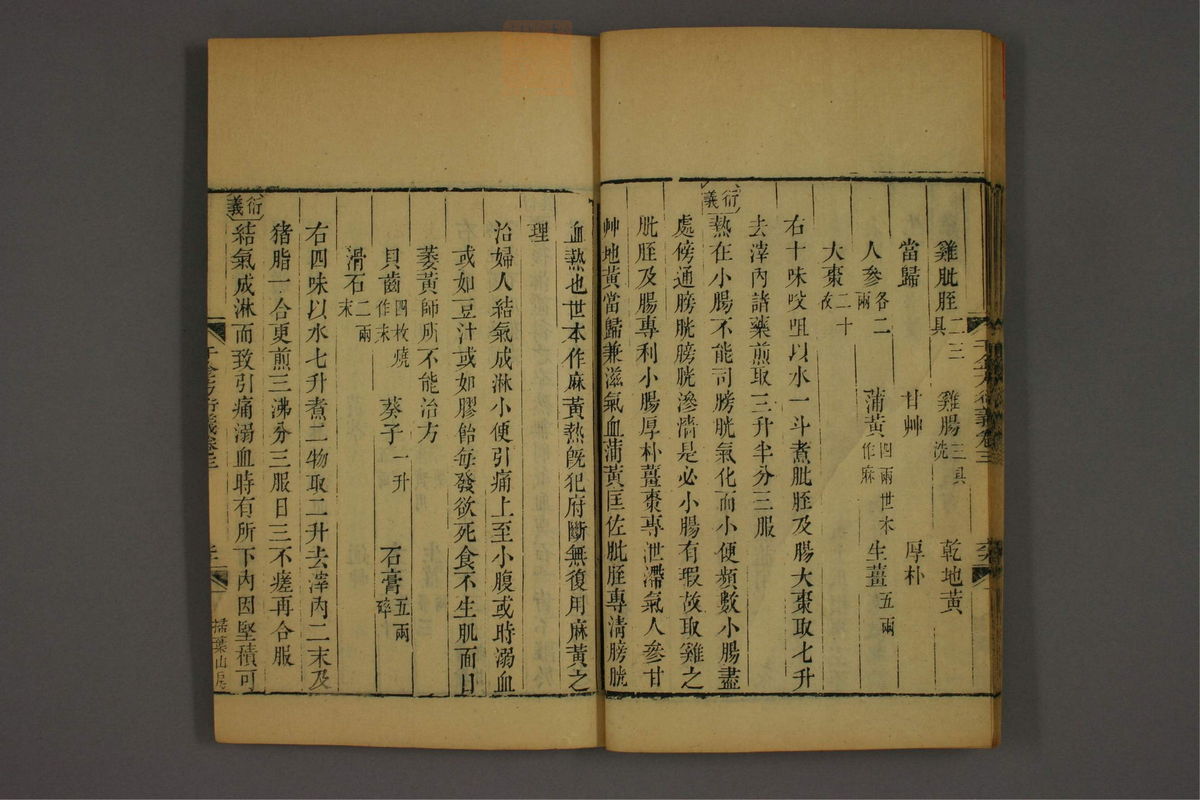 雞肶胵二三具 雞腸三具洗 乾地黃
當歸 甘艸 厚朴
人參各二兩 蒲黃四兩世本作麻 生薑五兩
大棗二十枚
右十味㕮咀以水一斗煮肶胵及腸大棗取七升
去滓內諸藥煎取三升半分三服
衍義
熱在小腸不能司膀胱氣化而小便頻數小腸盡
處傍通膀胱膀胱滲濟是必小腸有瑕故取雞之
肶胵及腸專利小腸厚朴薑棗專泄滯氣人參甘
艸地黃當歸兼滋氣血蒲黃匡佐肶胵專淸膀胱
千金方衍義卷三
血熱也世本作麻黃熱旣犯府斷無復用麻黃之
理
治婦人結氣成淋小便引痛上至小腹或時溺血
或如豆汁或如膠飴每發欲死食不生肌面目
萎黃師所不能治方
貝齒四枚燒作末 葵子一升 石膏五兩碎
滑石二兩末
右四味以水七升煮二物取二升去滓內二末及
猪脂一合更煎三沸分三服日三不瘥再合服
衍義
結氣成淋而致引痛溺血時有所下內因堅積可
千金方衍義卷三
掃葉山房